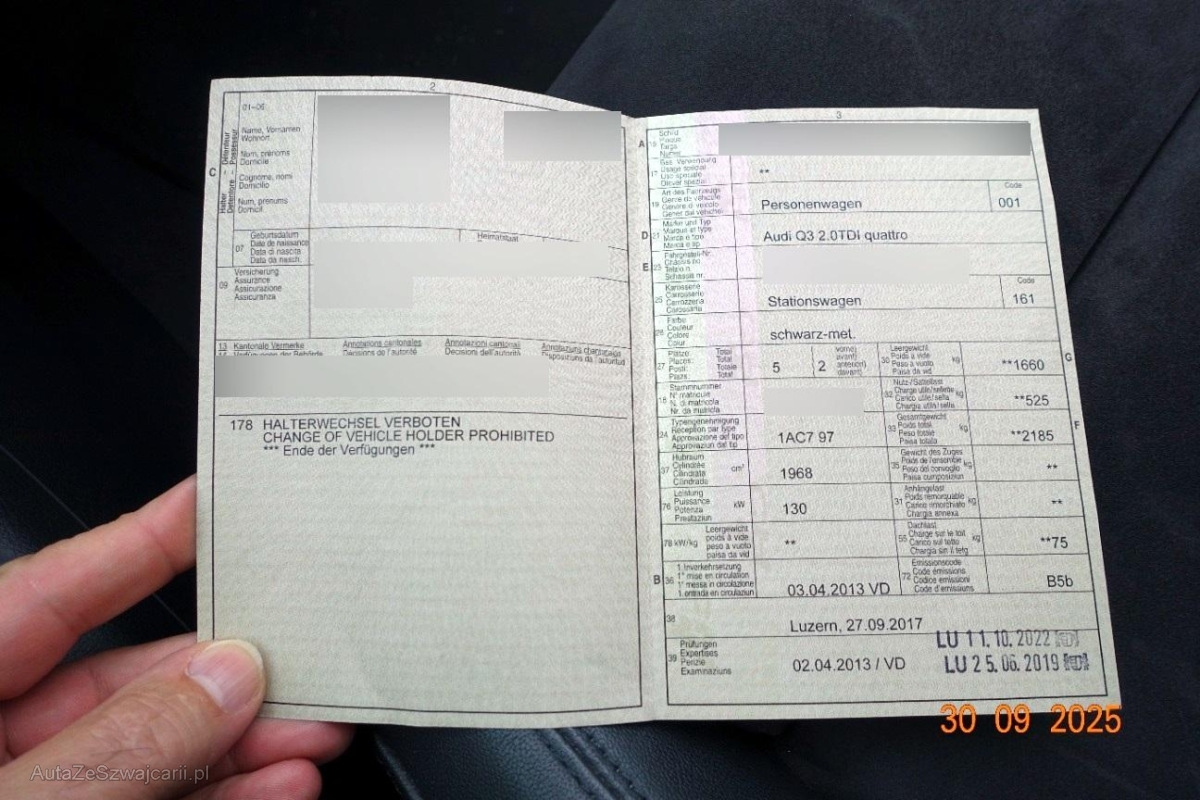 2
01-06
C
Halter Détenteur
Detentore Possessur
Name, Vornamen
Wohnort
Nom, prénoms
Domicile
Cognome, nomi
Domicilio
Num, prenums
Domicil
07
Geburtsdatum
Date de naissance
Data di nascita
Data da nasch.
Heimatstaat
09
Versicherung
Assurance
Assicurazione
Assicuranza
13 Kantonale Vermerke Annotations cantonales Annotazioni cantonali Annotaziuns chantunalas
14 Verfügungen der Behörde Décisions de l'autorité Decisioni dell'autorità Disposiziuns da l'autoritad
178 HALTERWECHSEL VERBOTEN
CHANGE OF VEHICLE HOLDER PROHIBITED
*** Ende der Verfügungen ***
3
A
Schild
Plaque
Targa
17
Bes. Verwendung
Usage spécial
Uso speciale
Diever spezial
**
19
Art des Fahrzeugs
Genre de véhicule
Genere di veicolo
Gener dal vehichel
Personenwagen
Code
001
D 21
Marke und Typ
Marque et type
Marca e tipo
Marca e tip
Audi Q3 2.0TDI quattro
E 23
Fahrgestell-Nr.
Châssis no
Telaio n.
Schassis nr.
25
Karosserie
Carrosserie
Carrozzeria
Carossaria
Stationswagen
Code
161
26
Farbe
Couleur
Colore
Colur
schwarz-met.
27
Plätze Total
Places: Total
Posti: Totale
Plazs: Total
5
2
vorne)
avant)
anteriori)
davant)
30
Leergewicht
Poids à vide
Peso a vuoto
Paisa da vid
kg
**1660
G
18
Stammnummer
N° matricule
N. di matricola
Nr. da matricla
32
Nutz-/Sattellast
Charge utile/sellette
Carico utile/sella
Chargia utila/sella
kg
**525
24
Typengenehmigung
Réception par type
Approvazione del tipo
Approvaziun dal tip
1AC7 97
33
Gesamtgewicht
Poids total
Peso totale
Paisa totala
kg
**2185
F
37
Hubraum
Cylindrée
Cilindrata
Cilindrada
cm³
1968
35
Gewicht des Zuges
Poids de l'ensemble
Peso del convoglio
Paisa cumposiziun
kg
**
76
Leistung
Puissance
Potenza
Prestaziun
kW
130
31
Anhängelast
Poids remorquable
Carico rimorchiato
Chargia annexa
kg
**
78 kW/kg
Leergewicht
poids à vide
peso a vuoto
paisa da vid
**
55
Dachlast
Charge sur le toit
Carico sul tetto
Chargia sin il tetg
kg
**75
B 36
1. Inverkehrsetzung
1re mise en circulation
1a messa in circolazione
1. entrada en circulaziun
03.04.2013 VD
72
Emissionscode
Code émissions
Codice emissioni
Code d'emissiuns
B5b
38
Luzern, 27.09.2017
39
Prüfungen
Expertises
Perizie
Examinaziuns
02.04.2013 / VD
LU 11.10.2022
LU 25.06.2019
30 09 2025
AutaZeSzwajcarii.pl